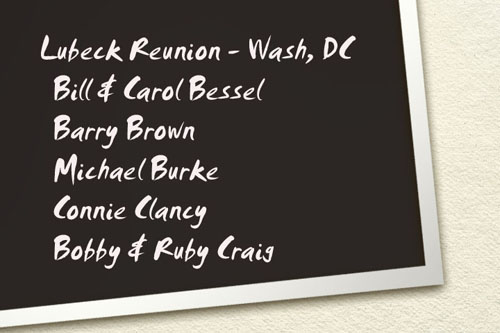 Lubeck Reunion - Wash, DC
Bill & Carol Bessel
Barry Brown
Michael Burke
Connie Clancy
Bobby & Ruby Craig